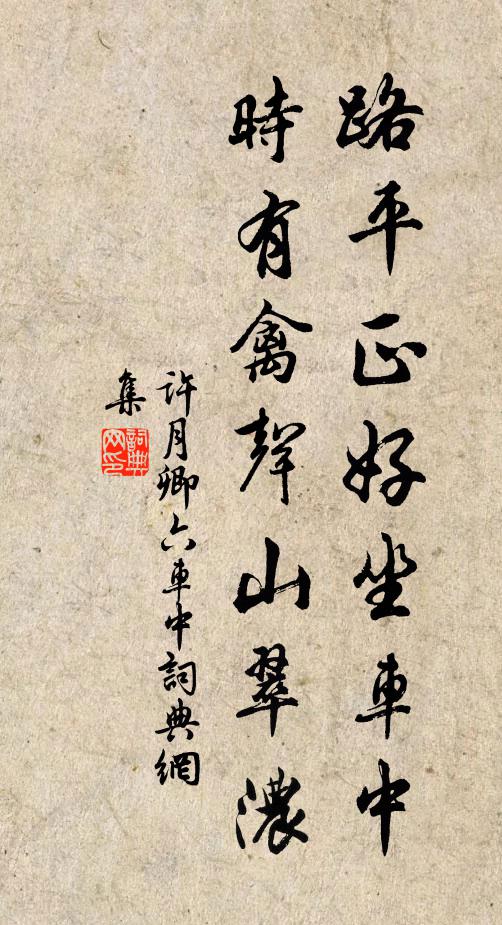 路平正好坐車中
時有禽聲山翠濃
許月卿六車中詞典網
集
詞典网印